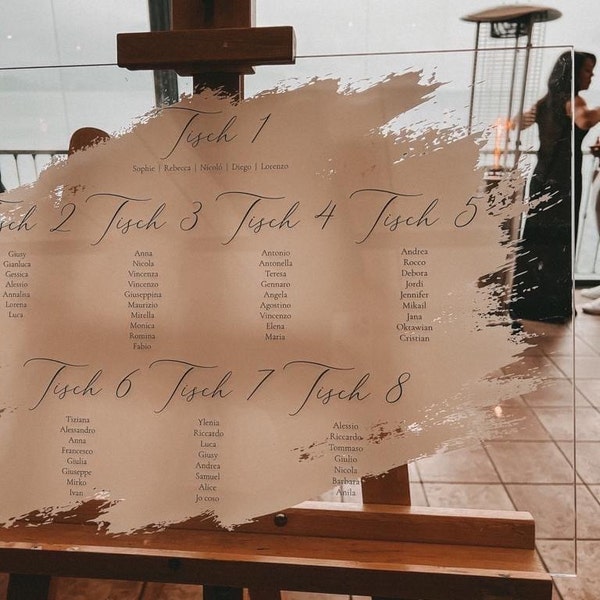 Tisch 1
Sophie | Rebecca | Nicoló | Diego | Lorenzo
Tisch 2
Giusy
Gianluca
Gessica
Alessio
Annalisa
Lorena
Luca
Tisch 3
Anna
Nicola
Vincenza
Vincenzo
Giuseppina
Maurizio
Mirella
Monica
Romina
Fabio
Tisch 4
Antonio
Antonella
Teresa
Gennaro
Angela
Agostino
Vincenzo
Elena
Maria
Tisch 5
Andrea
Rocco
Debora
Jordi
Jennifer
Mikail
Jana
Oktawian
Cristian
Tisch 6
Tiziana
Alessandro
Anna
Francesco
Giulia
Giuseppe
Mirko
Ivan
Tisch 7
Ylenia
Riccardo
Luca
Giusy
Andrea
Samuel
Alice
Jo coso
Tisch 8
Alessio
Riccardo
Tommaso
Giulio
Nicola
Barbara
Anila